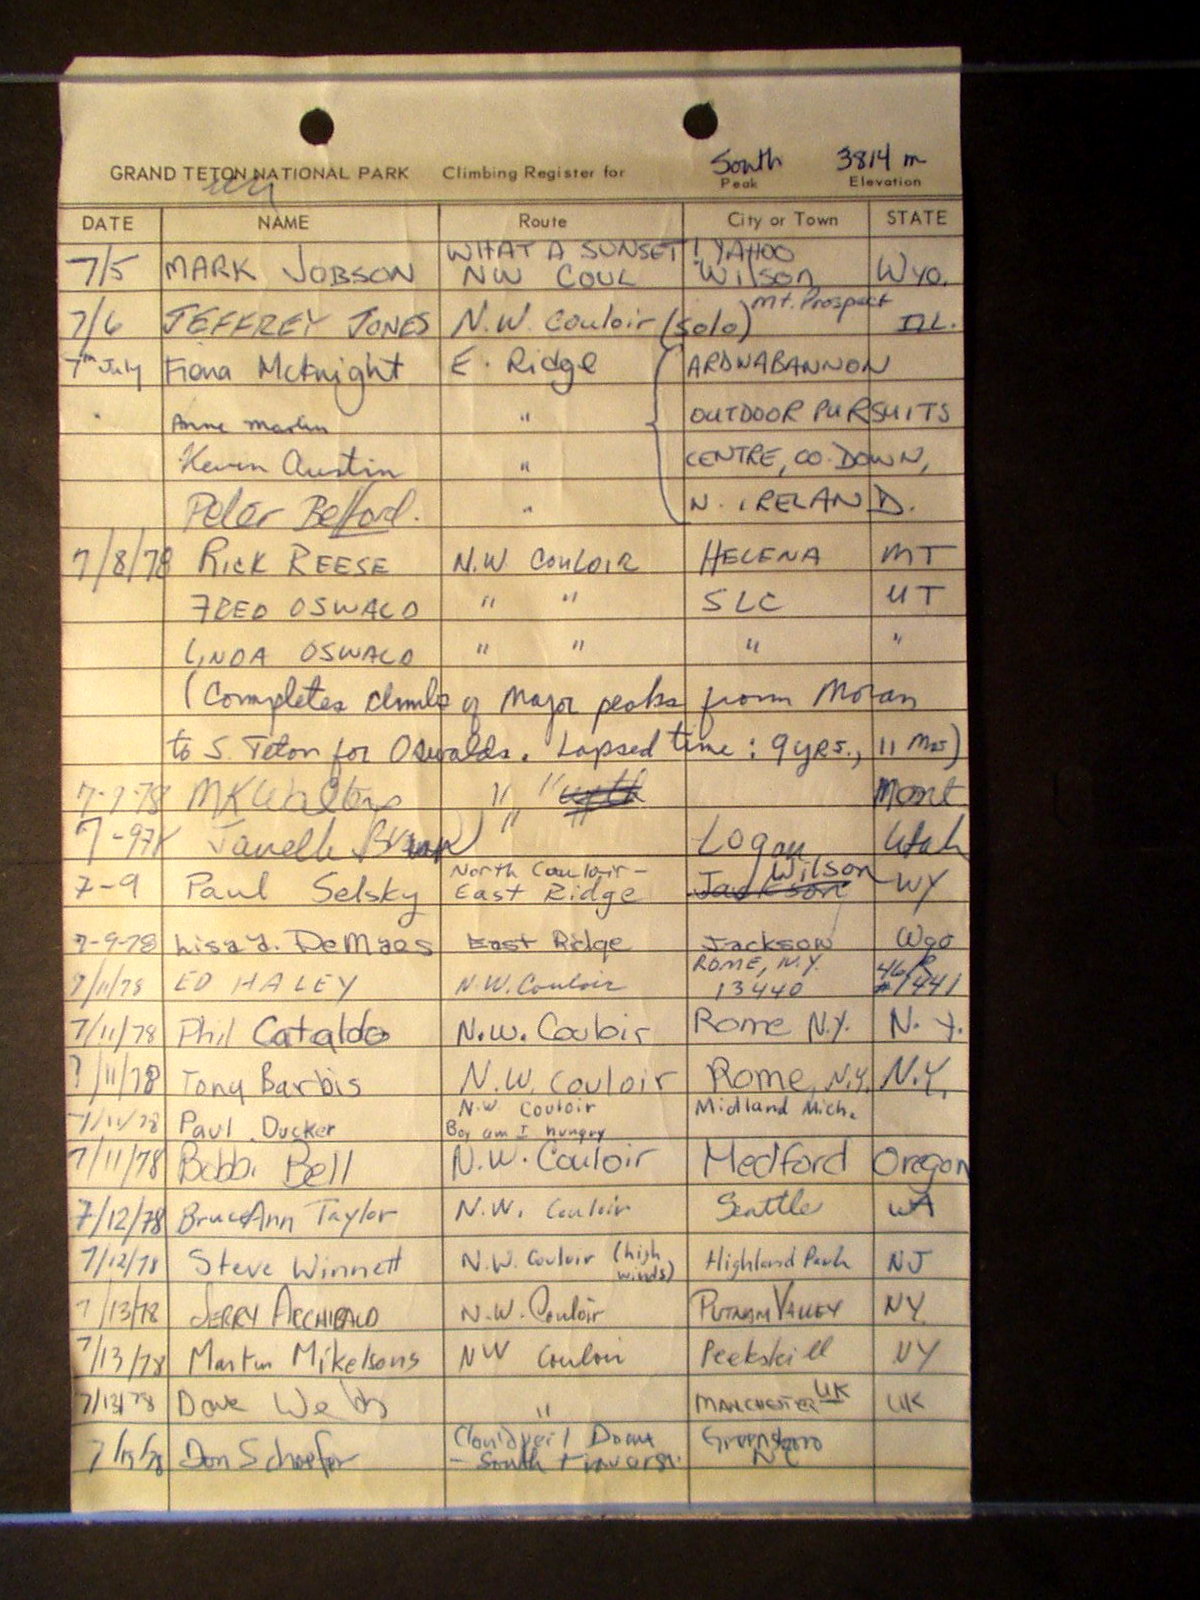 South 3814 m
GRAND TETON NATIONAL PARK Climbing Register for Peak Elevation
DATE NAME Route City or Town STATE
WHAT A SUNSET! YAHOO
7/5 MARK JOBSON NW COUL Wilson Wyo.
7/6 JEFFREY JONES N.W. Couloir (solo) Mt. Prospect ILL.
7th July Fiona McKnight E. Ridge ARDNABANNON
" Anne Martin " OUTDOOR PURSUITS
Kevin Austin " CENTRE, CO. DOWN,
Peter Belford. " N. IRELAND.
7/8/78 RICK REESE N.W COULOIR HELENA MT
FRED OSWALD " " SLC UT
LINDA OSWALD " " " "
(Completes climbs of Major peaks from Moran
to S Teton for Oswalds. Lapsed time: 9 yrs., 11 Mos)
7-7-78 MK Walters " " Mont
7-978 Janelle " " Logan Utah
7-9 Paul Selsky North Couloir - East Ridge Jackson Wilson WY
7-9-78 Lisa J. DeMaes East Ridge Jackson Wyo
7/11/78 ED HALEY N.W. Couloir ROME, N.Y. 13440 46/R #1441
7/11/78 Phil Cataldo N.W. Couloir Rome N.Y. N.Y.
7/11/78 Tony Barbis N.W. Couloir Rome, N.Y. N.Y.
7/11/78 Paul Ducker N.W Couloir Midland Mich.
Boy am I hungry
7/11/78 Bobbi Bell N.W. Couloir Medford Oregon
7/12/78 BruceAnn Taylor N.W. Couloir Seattle WA
7/12/78 Steve Winnett N.W. Couloir (high winds) Highland Park NJ
7/13/78 JERRY ARCHIBALD N.W. Couloir PUTNAM VALLEY NY
7/13/78 Martin Mikelsons NW Couloir Peekskill NY
7/13/78 Dave Webb " MANCHESTER UK UK
7/13/78 Don Schaefer Cloudveil Dome Greensboro NC
- South traverse